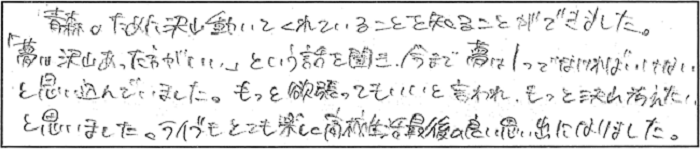 青森のために沢山動いてくれていることを知ることができました。
「夢は沢山あった方がいい」という話を聞き、今まで夢は1つでなければいけない
と思い込んでいました。もっと欲張ってもいいと言われ、もっと沢山考えたい
と思いました。ライブもとても楽しく高校生活最後の良い思い出になりました。